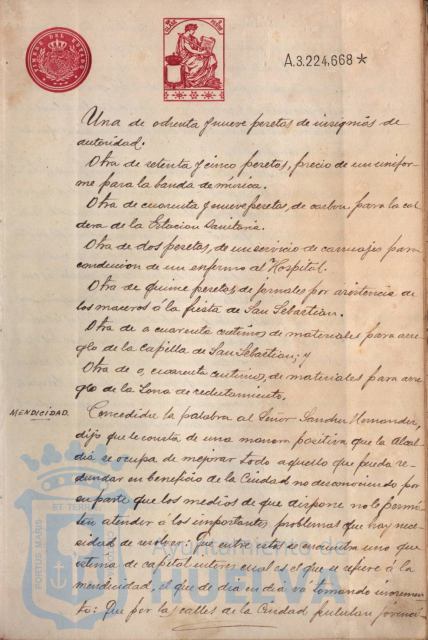 TIMBRE DEL ESTADO
A.3.224,668*
Una de ochenta y nueve pesetas de insignias de
autoridad.
Otra de setenta y cinco pesetas, precio de un unifor-
me para la banda de música.
Otra de cuarenta y nueve pesetas, de carbon para la cal-
dera de la Estacion Sanitaria.
Otra de dos pesetas, de un servicio de carruajes para
conduccion de un enfermo al Hospital.
Otra de quince pesetas de jornales por asistencia de
los maceros á la fiesta de San Sebastian.
Otra de 0, cuarenta centimos, de materiales para arre-
glo de la Capilla de San Sebastian; y
Otra de 0, cuarenta centimos, de materiales para arre-
glo de la Zona de reclutamiento.
MENDICIDAD.
Concedida la palabra al Señor Sanchez Hernandez,
dijo que le consta de una manera positiva que la Alcal-
dia se ocupa de mejorar todo aquello que pueda re-
dundar en beneficio de la Ciudad no desconociendo por
su parte que los medios de que dispone no le permi-
ten atender á los importantes problemas que hay nece-
sidad de resolver: Que entre estos se encuentra uno que
estima de capital interes cual es el que se refiere á la
mendicidad, el que de dia en dia vá tomando incremen-
to: Que por las calles de la Ciudad pululan
PORTUS MARIS
ET TERRAE
Ayuntamiento de
HUELVA